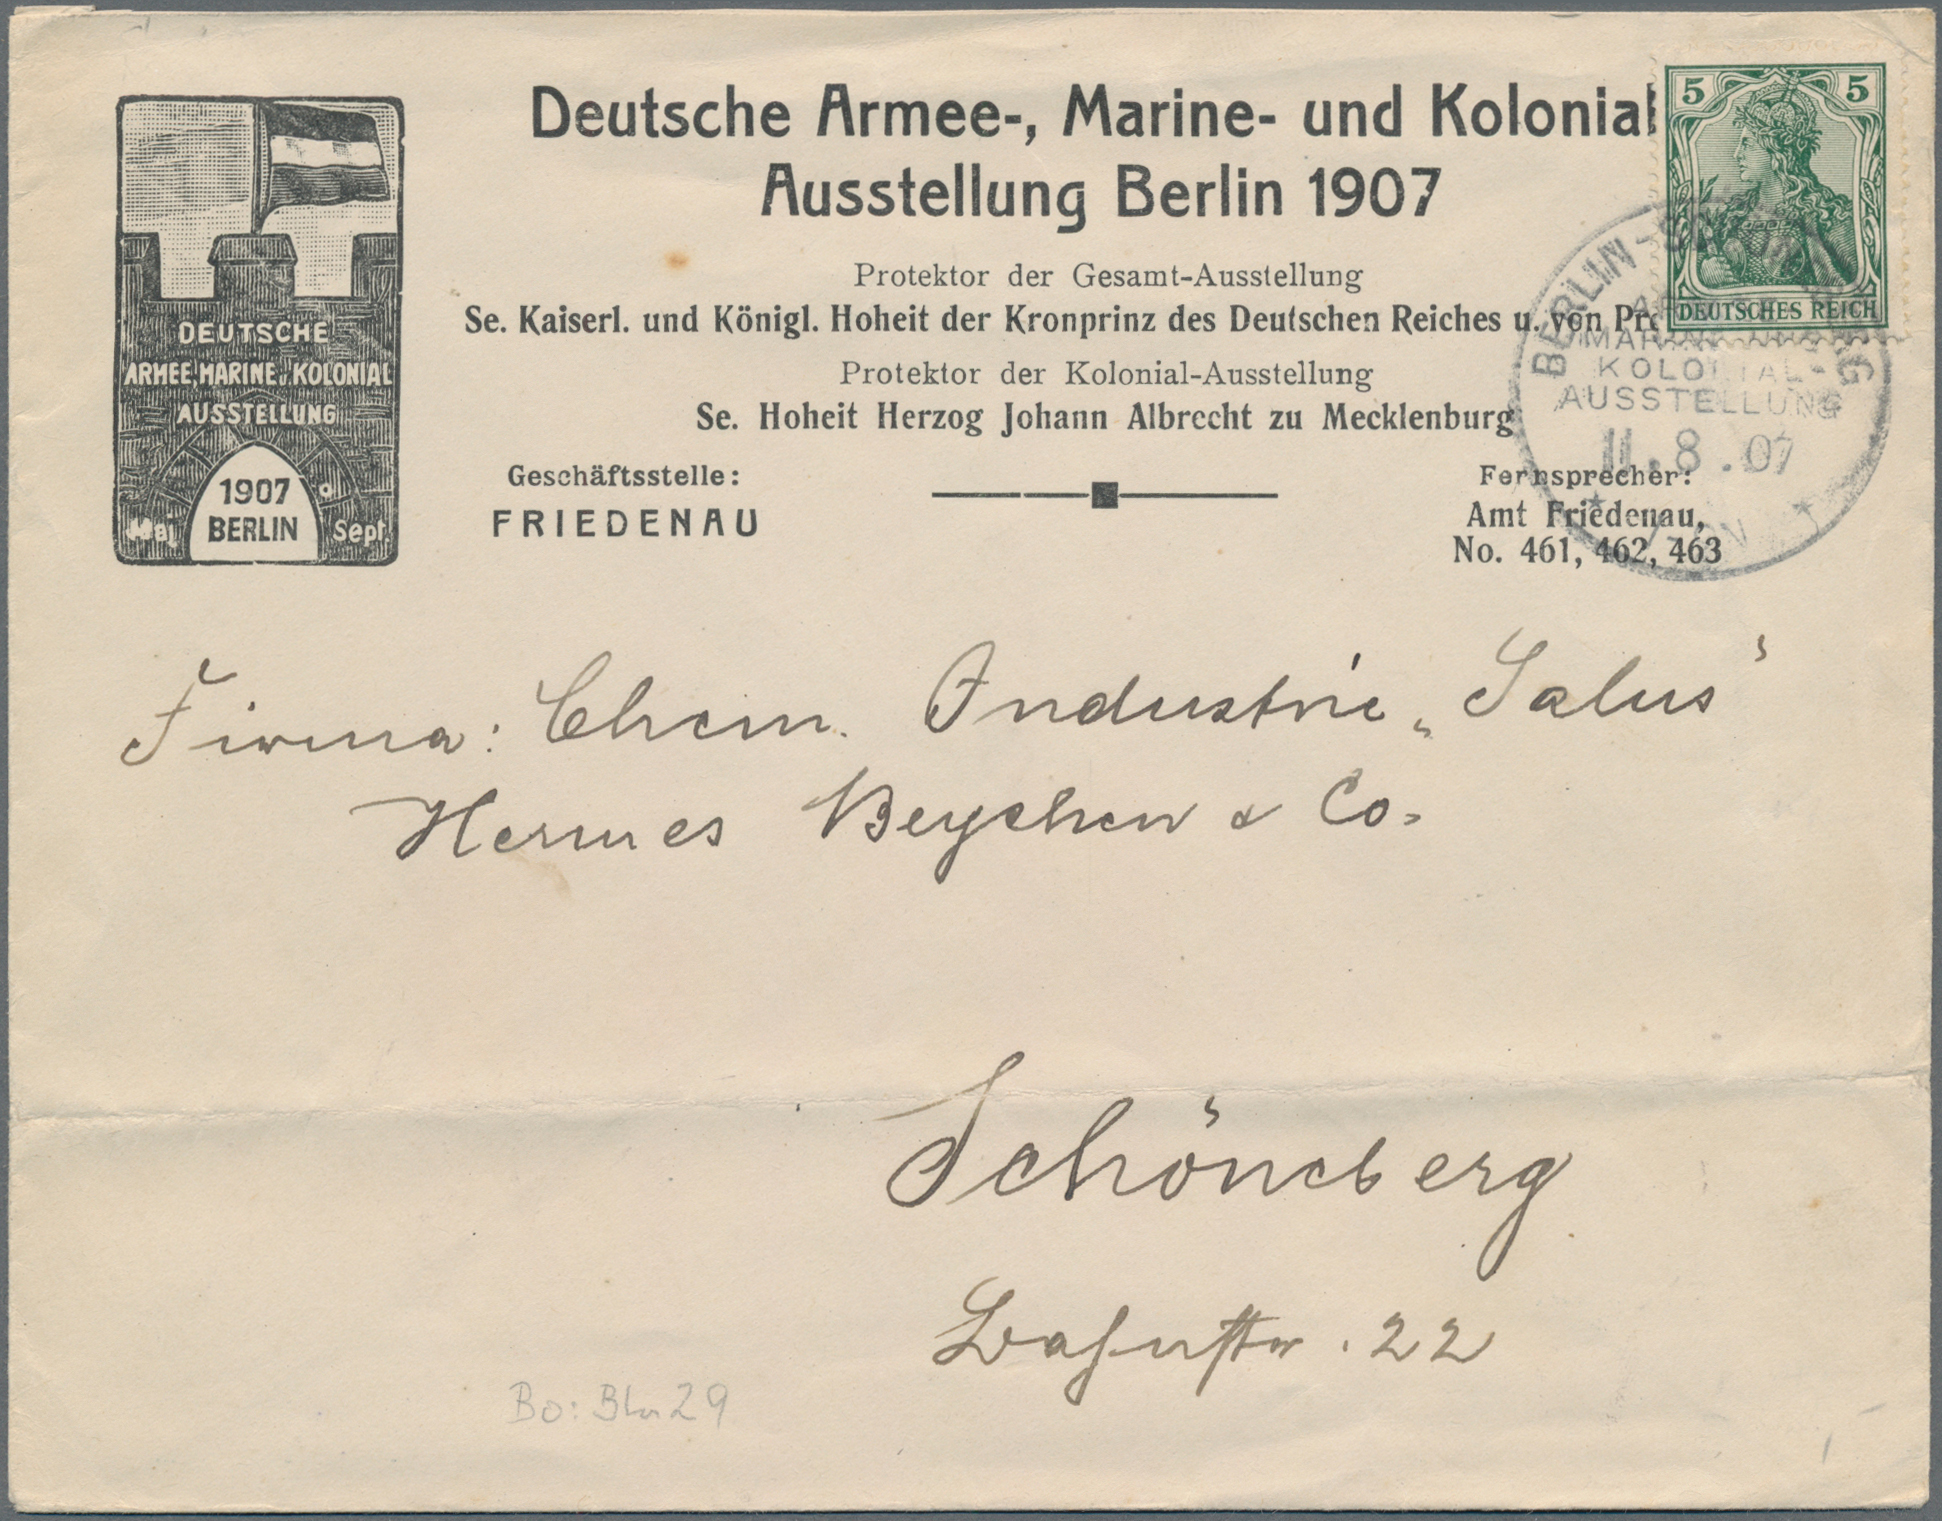 Deutsche Armee-, Marine- und Kolonial
Ausstellung Berlin 1907
Protektor der Gesamt-Ausstellung
Se. Kaiserl. und Königl. Hoheit der Kronprinz des Deutschen Reiches u. von Pre
Protektor der Kolonial-Ausstellung
Se. Hoheit Herzog Johann Albrecht zu Mecklenburg
Geschäftsstelle:
FRIEDENAU
Fernsprecher:
Amt Friedenau,
No. 461, 462, 463
DEUTSCHE
ARMEE, MARINE u. KOLONIAL
AUSSTELLUNG
1907
BERLIN
Mai
Sept.
5 5
DEUTSCHES REICH
BERLIN
MARINE
KOLONIAL-
AUSSTELLUNG
11.8.07
Firma: Chem. Industrie „Salus"
Hermes Beychen & Co.
Schöneberg
Bahnstr. 22
Bo: Bln 29